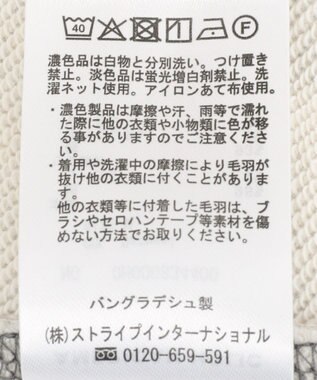 40
F
濃色品は白物と分別洗い。つけ置き
禁止。淡色品は蛍光増白剤禁止。洗
濯ネット使用。アイロンあて布使用。
・濃色製品は摩擦や汗、雨等で濡れ
た際に他の衣類や小物類に色が移
る事がありますのでご注意くださ
い。
・着用や洗濯中の摩擦により毛羽が
抜け他の衣類に付くことがありま
す。
他の衣類等に付着した毛羽は、ブ
ラシやセロハンテープ等素材を傷
めない方法でお取りください。
バングラデシュ製
(株)ストライプインターナショナル
0120-659-591